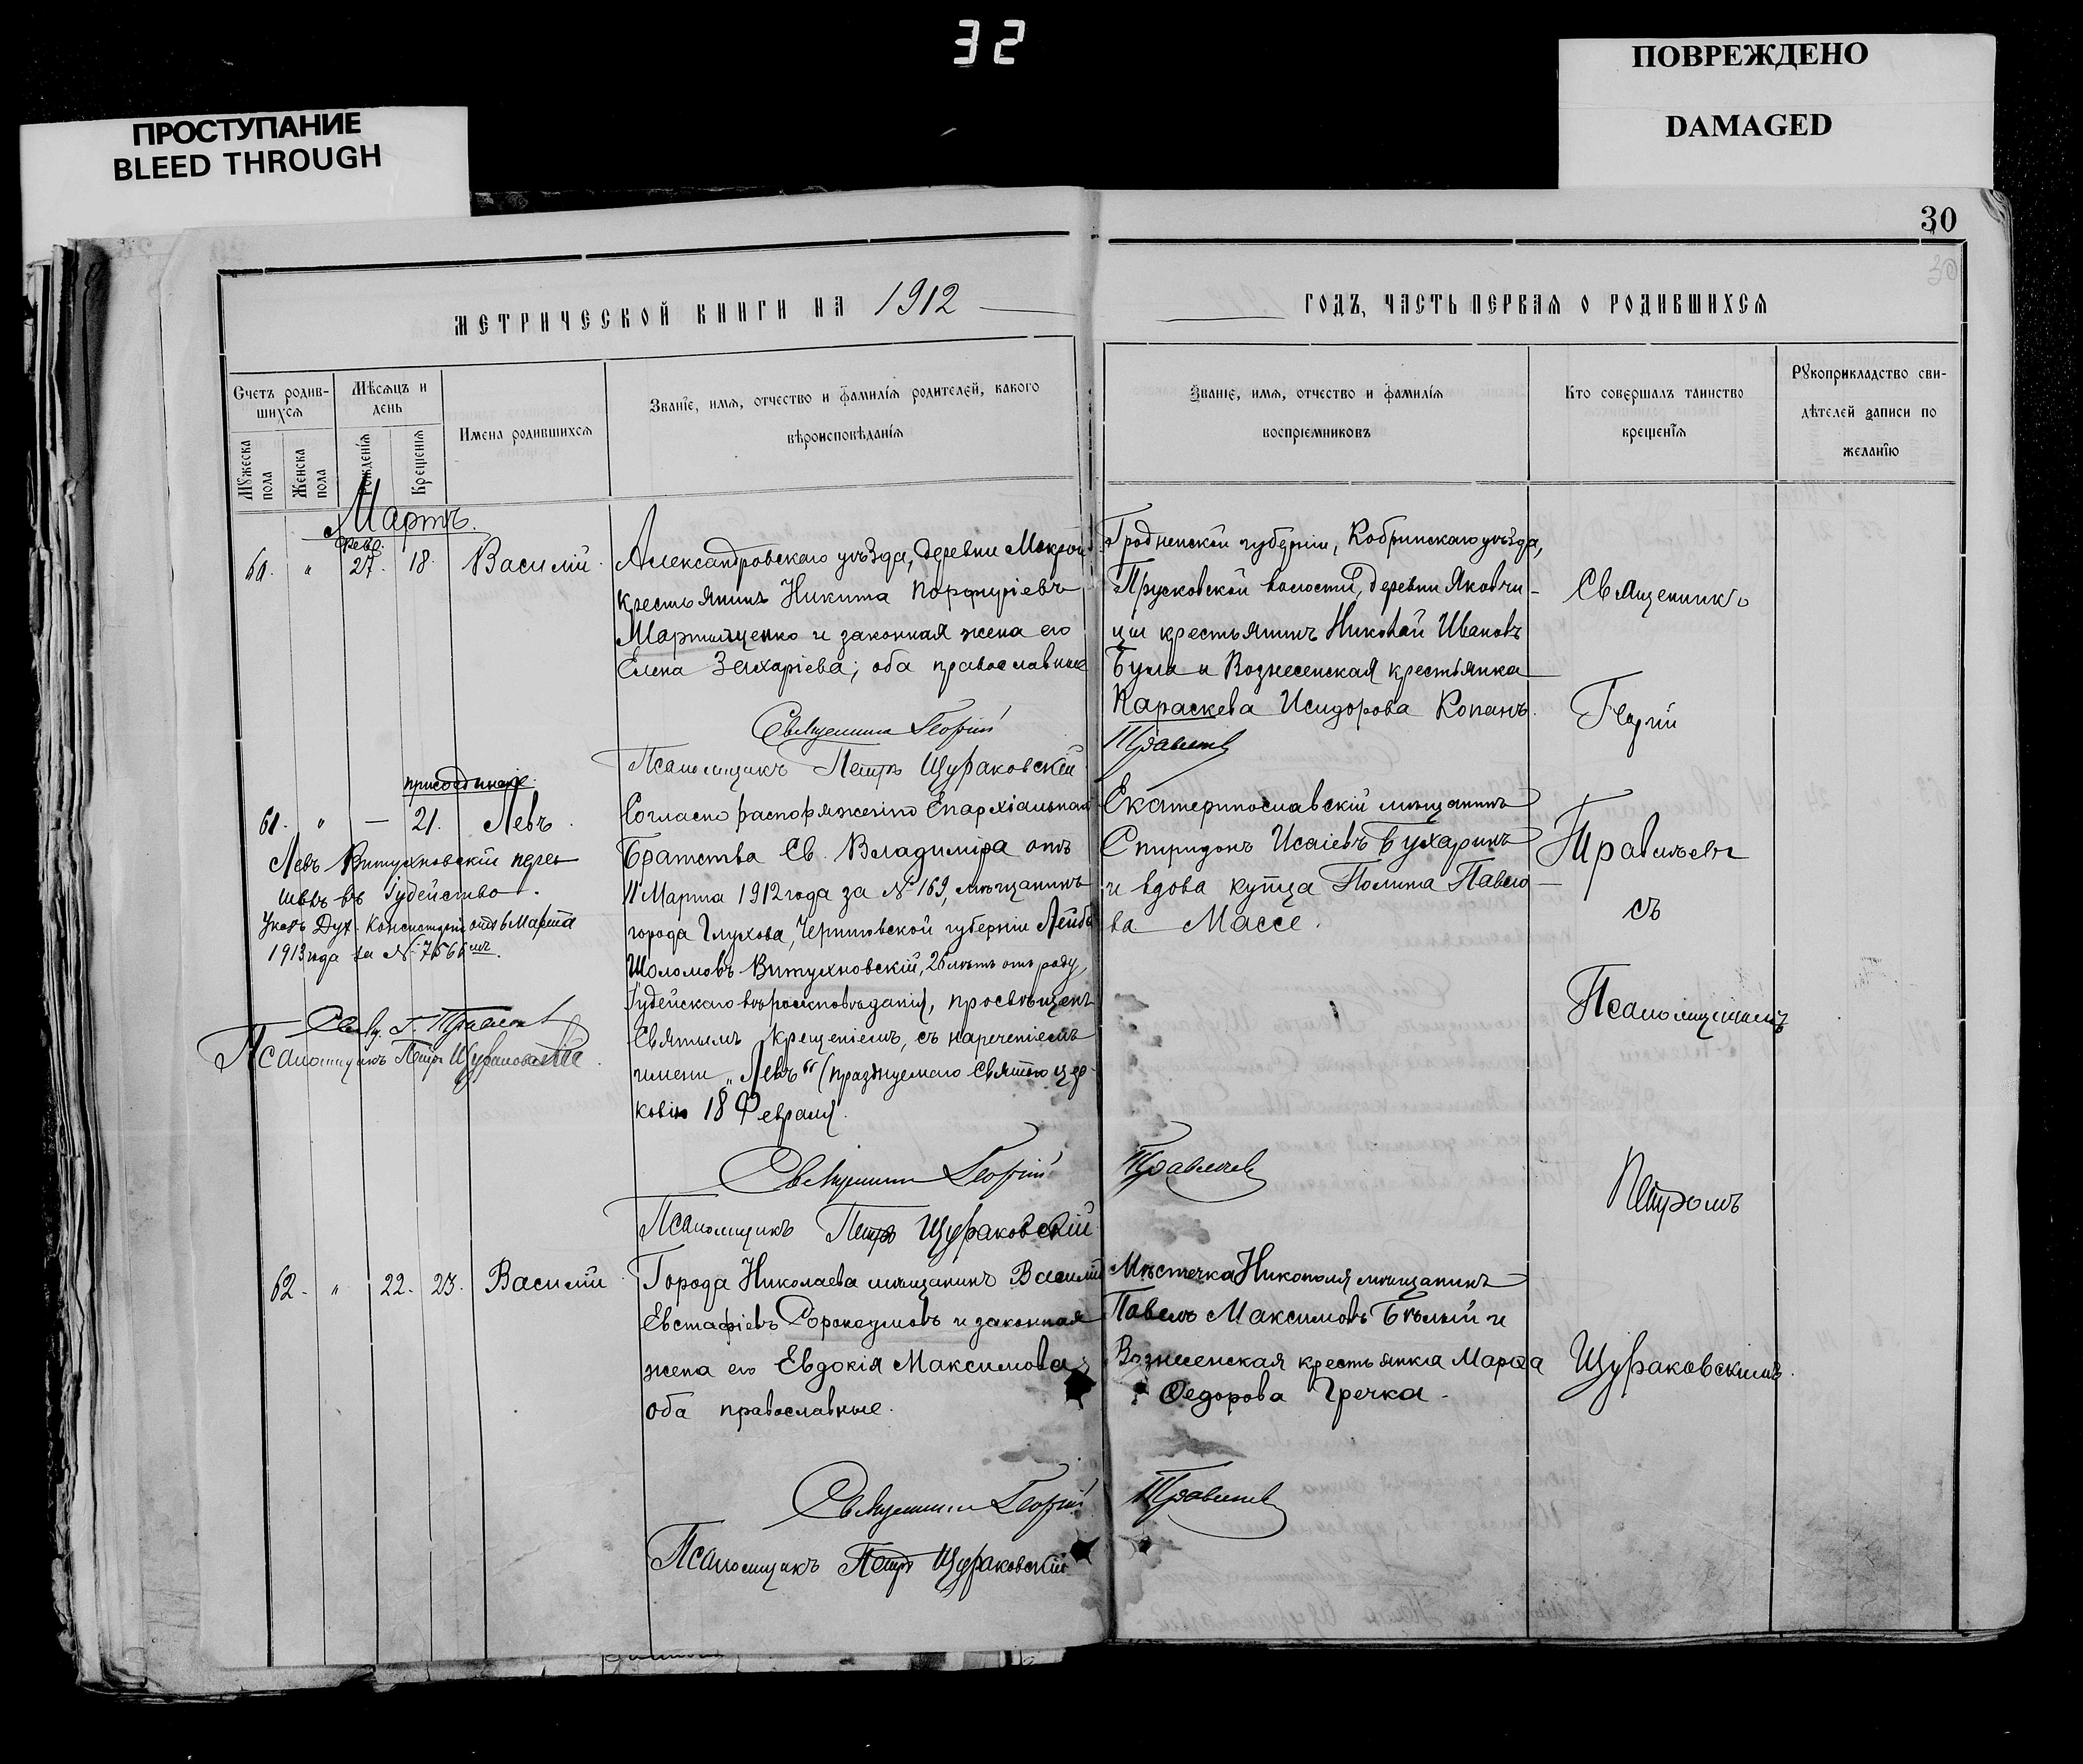 32
ПРОСТУПАНИЕ
BLEED THROUGH
ПОВРЕЖДЕНО
DAMAGED
30
30
МЕТРИЧЕСКОЙ КНИГИ НА 1912
ГОДЪ, ЧАСТЬ ПЕРВАЯ О РОДИВШИХСЯ
Счетъ родив-
шихся
Мужеска
пола
Женска
пола
Мѣсяцъ и
день
Рожденія
Крещенія
Имена родившихся
Званіе, имя, отчество и фамилія родителей, какого
вѣроисповѣданія
Званіе, имя, отчество и фамилія
воспріемниковъ
Кто совершалъ таинство
крещенія
Рукоприкладство сви-
дѣтелей записи по
желанію
Мартъ.
Февр.
60. " 27. 18. Василій
Александровскаго уѣзда, деревни Мокрой
крестьянинъ Никита Порфиріевъ
Мартыщенко и законная жена его
Елена Захаріева; оба православные
Священникъ Георгій
Псаломщикъ Петръ Щураковскій
Гродненской губерніи, Кобринскаго уѣзда,
Прусковской волости, деревни Яковчи-
цы крестьянинъ Николай Ивановъ
Була и Вознесенская крестьянка
Параскева Исидорова Копанъ.
Правиловъ
Священникъ
Георгій
присоединеніе.
61. " — 21. Левъ.
Левъ Витухновскій пере-
шелъ въ Іудейство.
Указъ Дух. Консисторіи отъ 6 Марта
1913 года за № 7566
Свящ. Г. Правиловъ
Псаломщикъ Петръ Щураковскій
Согласно распоряженію Епархіальнаго
Братства Св. Владиміра отъ
11 Марта 1912 года за № 169, мѣщанинъ
города Глухова, Черниговской губерніи Лейба
Шоломовъ Витухновскій, 26 лѣтъ отъ роду,
Іудейскаго вѣроисповѣданія, просвѣщенъ
Святымъ Крещеніемъ, съ нареченіемъ
имени „Левъ“ (празднуемаго Святою цер-
ковію 18 Февраля.
Священникъ Георгій
Псаломщикъ Петръ Щураковскій
Екатеринославскій мѣщанинъ
Спиридонъ Исаіевъ Бухаринъ
и вдова купца Полина Павло-
ва Массе.
Правиловъ
съ
Псаломщикомъ
Петромъ
62. " 22. 23. Василій
Города Николаева мѣщанинъ Василій
Евстафіевъ Сорокоумовъ и законная
жена его Евдокія Максимова;
оба православные.
Священникъ Георгій
Псаломщикъ Петръ Щураковскій
Мѣстечка Никополя мѣщанинъ
Павелъ Максимовъ Бѣлый и
Вознесенская крестьянка Марѳа
Ѳедорова Гречка.
Правиловъ
Щураковскимъ.